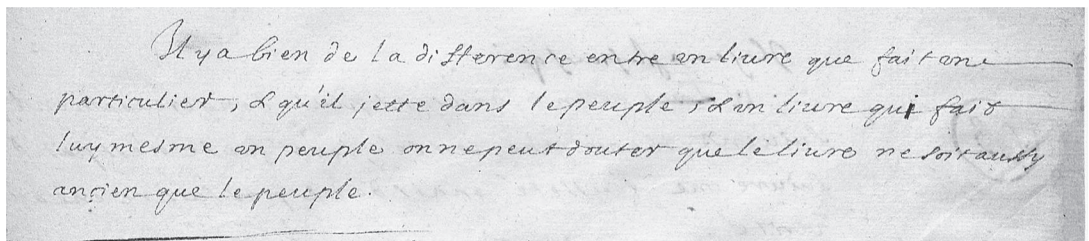 Il y a bien de la difference entre un liure que fait un
particulier, & qu'il jette dans le peuple, & un liure qui fait
luy mesme un peuple on ne peut douter que le liure ne soit aussy
ancien que le peuple.